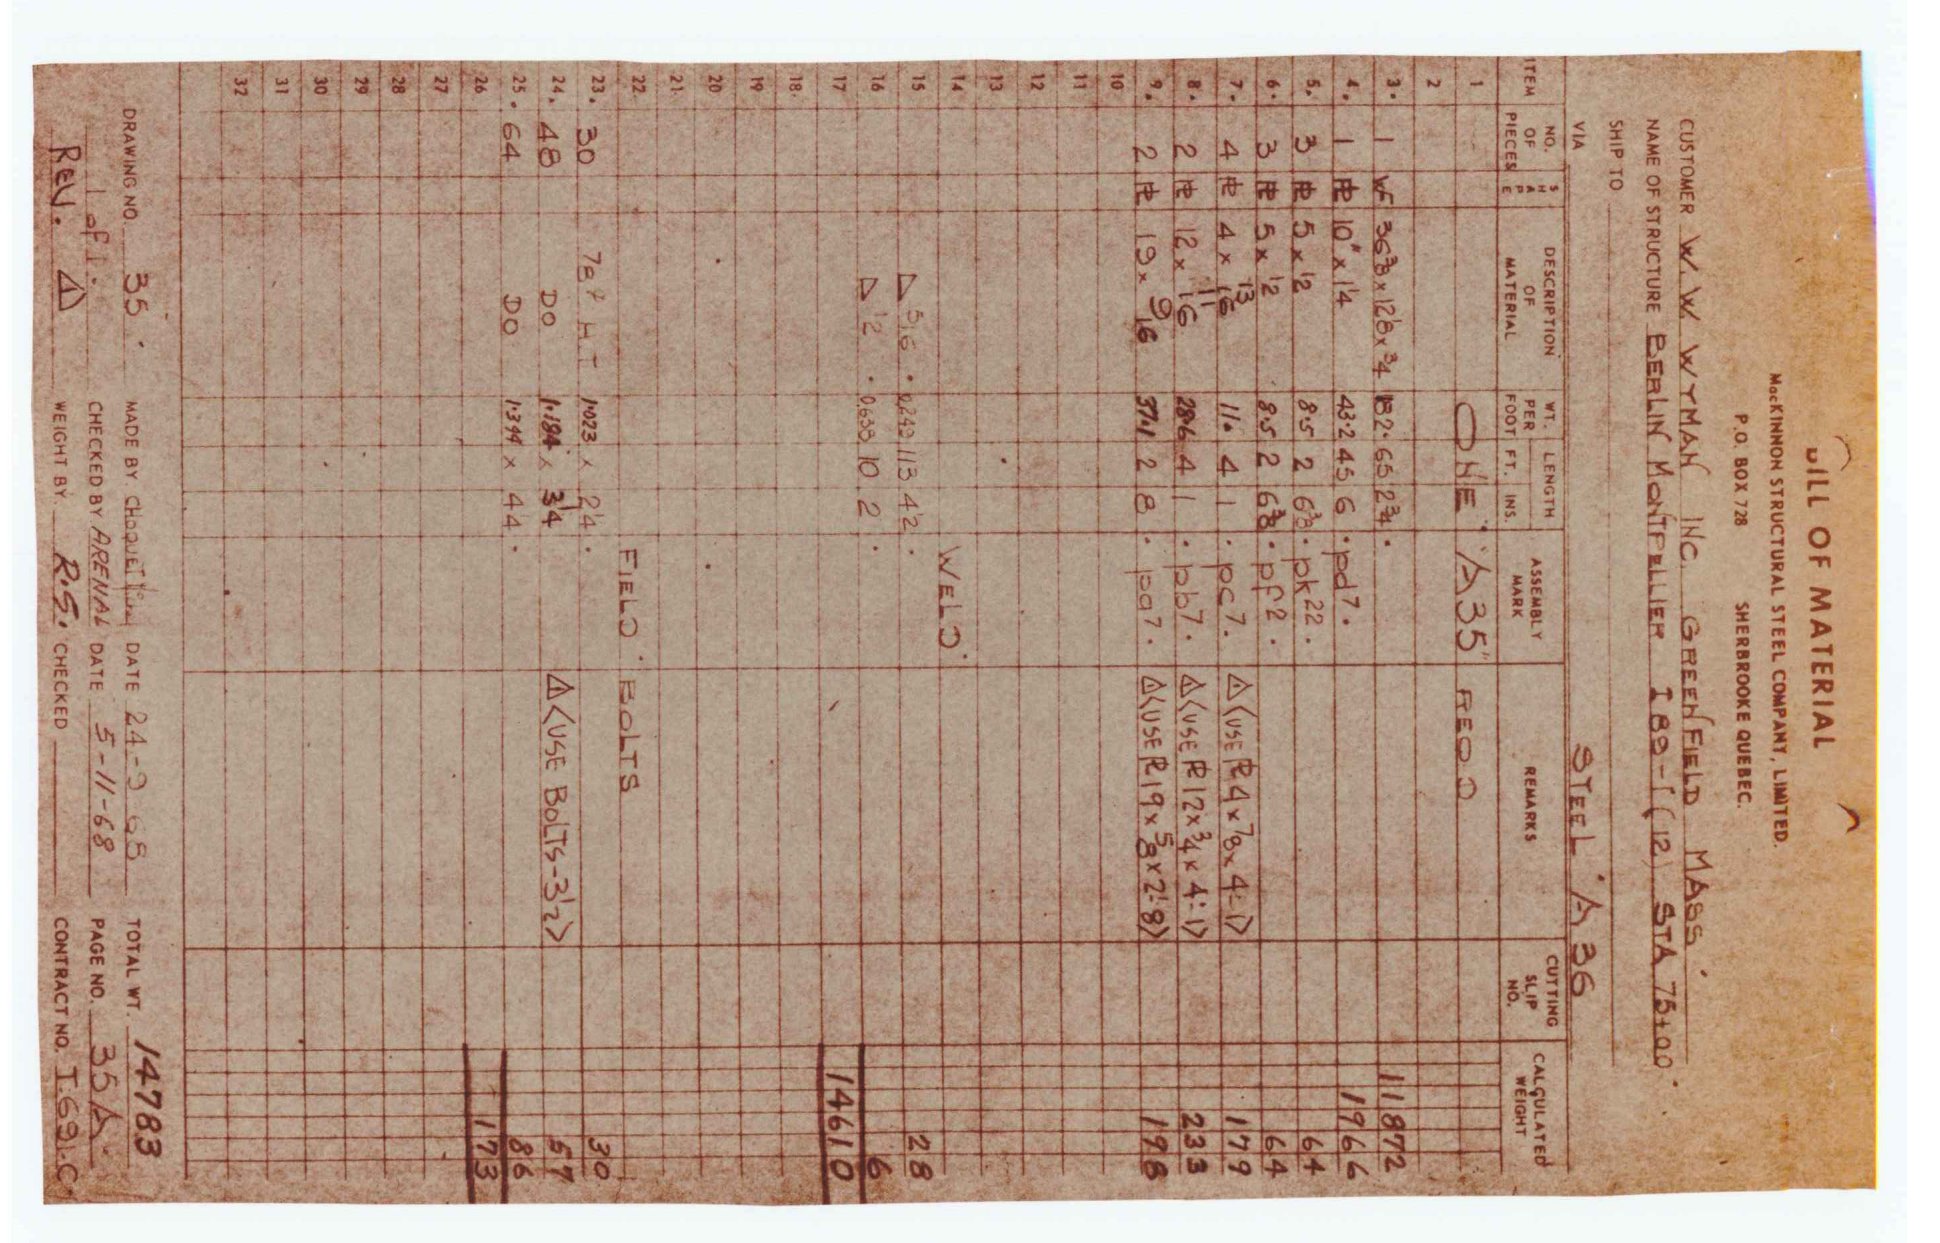 BILL OF MATERIAL
MacKINNON STRUCTURAL STEEL COMPANY, LIMITED.
P.O. BOX 728 SHERBROOKE QUEBEC.
CUSTOMER W. W WYMAN INC. GREENFIELD MASS.
NAME OF STRUCTURE BERLIN MONTPELLIER I 89-1(12) STA 75+00.
SHIP TO
VIA STEEL "A 36
ITEM NO. OF PIECES SHAPE DESCRIPTION OF MATERIAL WT. PER FOOT LENGTH FT. INS. ASSEMBLY MARK REMARKS CUTTING SLIP NO. CALCULATED WEIGHT
1 ONE "A35" REQD
2
3. 1 WF 36 3/8 x 12 1/8 x 3/4 182. 65 2 3/4. 11872
4. 1 PL 10" x 1 1/4 43.2 45 6 . pd7. 1966
5. 3 PL 5 x 1/2 8.5 2 6 3/8 . pk22. 64
6. 3 PL 5 x 1/2 8.5 2 6 3/8 . pf2. 64
7. 4 PL 4 x 13/16 11. 4 1 . pc7. △1 <USE PL 4 x 7/8 x 4-1> 179
8. 2 PL 12 x 11/16 28.6 4 1 . pb7. △1 <USE PL 12 x 3/4 x 4-1> 233
9. 2 PL 19 x 9/16 37.1 2 8 . pa7. △1 <USE PL 19 x 5/8 x 2-8> 198
10
11
12
13
14 WELD.
15 △ 5/16 . 0.249 113 4 1/2 . 28
16 △ 1/2 . 0.638 10 2 . 6
17 14610
18.
19
20
21
22 FIELD . BOLTS
23. 30 7/8 ø HT 1.023 x 2 1/4 . 30
24. 48 DO 1.184 x 3 1/4 △1 <USE BOLTS-3 1/2> 57
25. 64 DO 1.344 x 4 1/4 . 86
26 173
27
28
29
30
31
32
DRAWING NO. 35 . MADE BY DATE 24-9-68 TOTAL WT. 14783
1 of 1. CHECKED BY ARENAL DATE 5-11-68 PAGE NO. 35A.
REV. △1 WEIGHT BY. R.S. CHECKED CONTRACT NO. I.69.C.